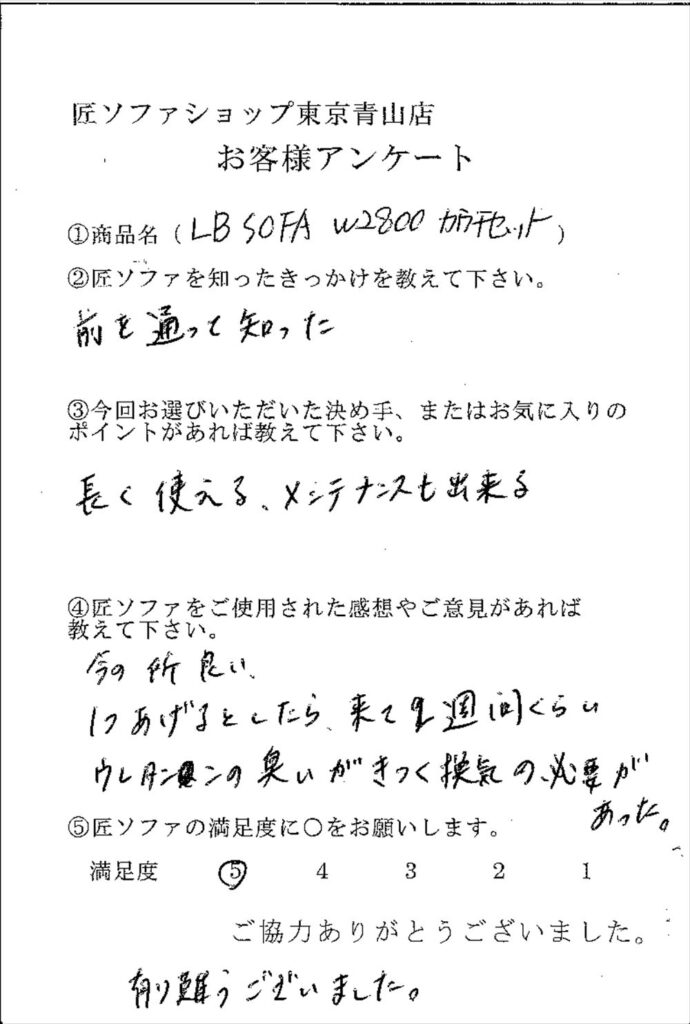 匠ソファショップ東京青山店
お客様アンケート
①商品名（LB SOFA W2800 カウチセット）
②匠ソファを知ったきっかけを教えて下さい。
前を通って知った
③今回お選びいただいた決め手、またはお気に入りの
ポイントがあれば教えて下さい。
長く使える、メンテナンスも出来る
④匠ソファをご使用された感想やご意見があれば
教えて下さい。
今の所良い、
1つあげるとしたら、来て 週間くらい
ウレタンの臭いがきつく換気の必要が
あった。
⑤匠ソファの満足度に○をお願いします。
満足度 5 4 3 2 1
ご協力ありがとうございました。
有り難うございました。